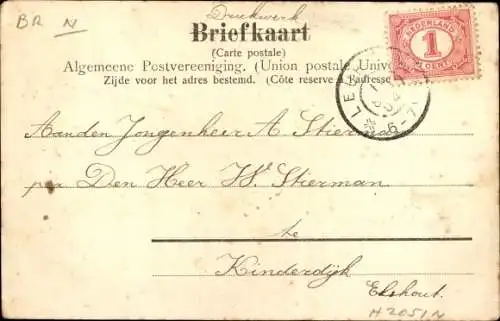 BR N
Drukwerk
Briefkaart
(Carte postale)
Algemeene Postvereeniging. (Union postale Unive
Zijde voor het adres bestemd. (Côte réservé à l'adresse
NEDERLAND
1
CENT
LE
6-7
Aan den Jongenheer A. Stierman
per Den Heer W. Stierman
te
Kinderdijk
Elshout.
H2051N